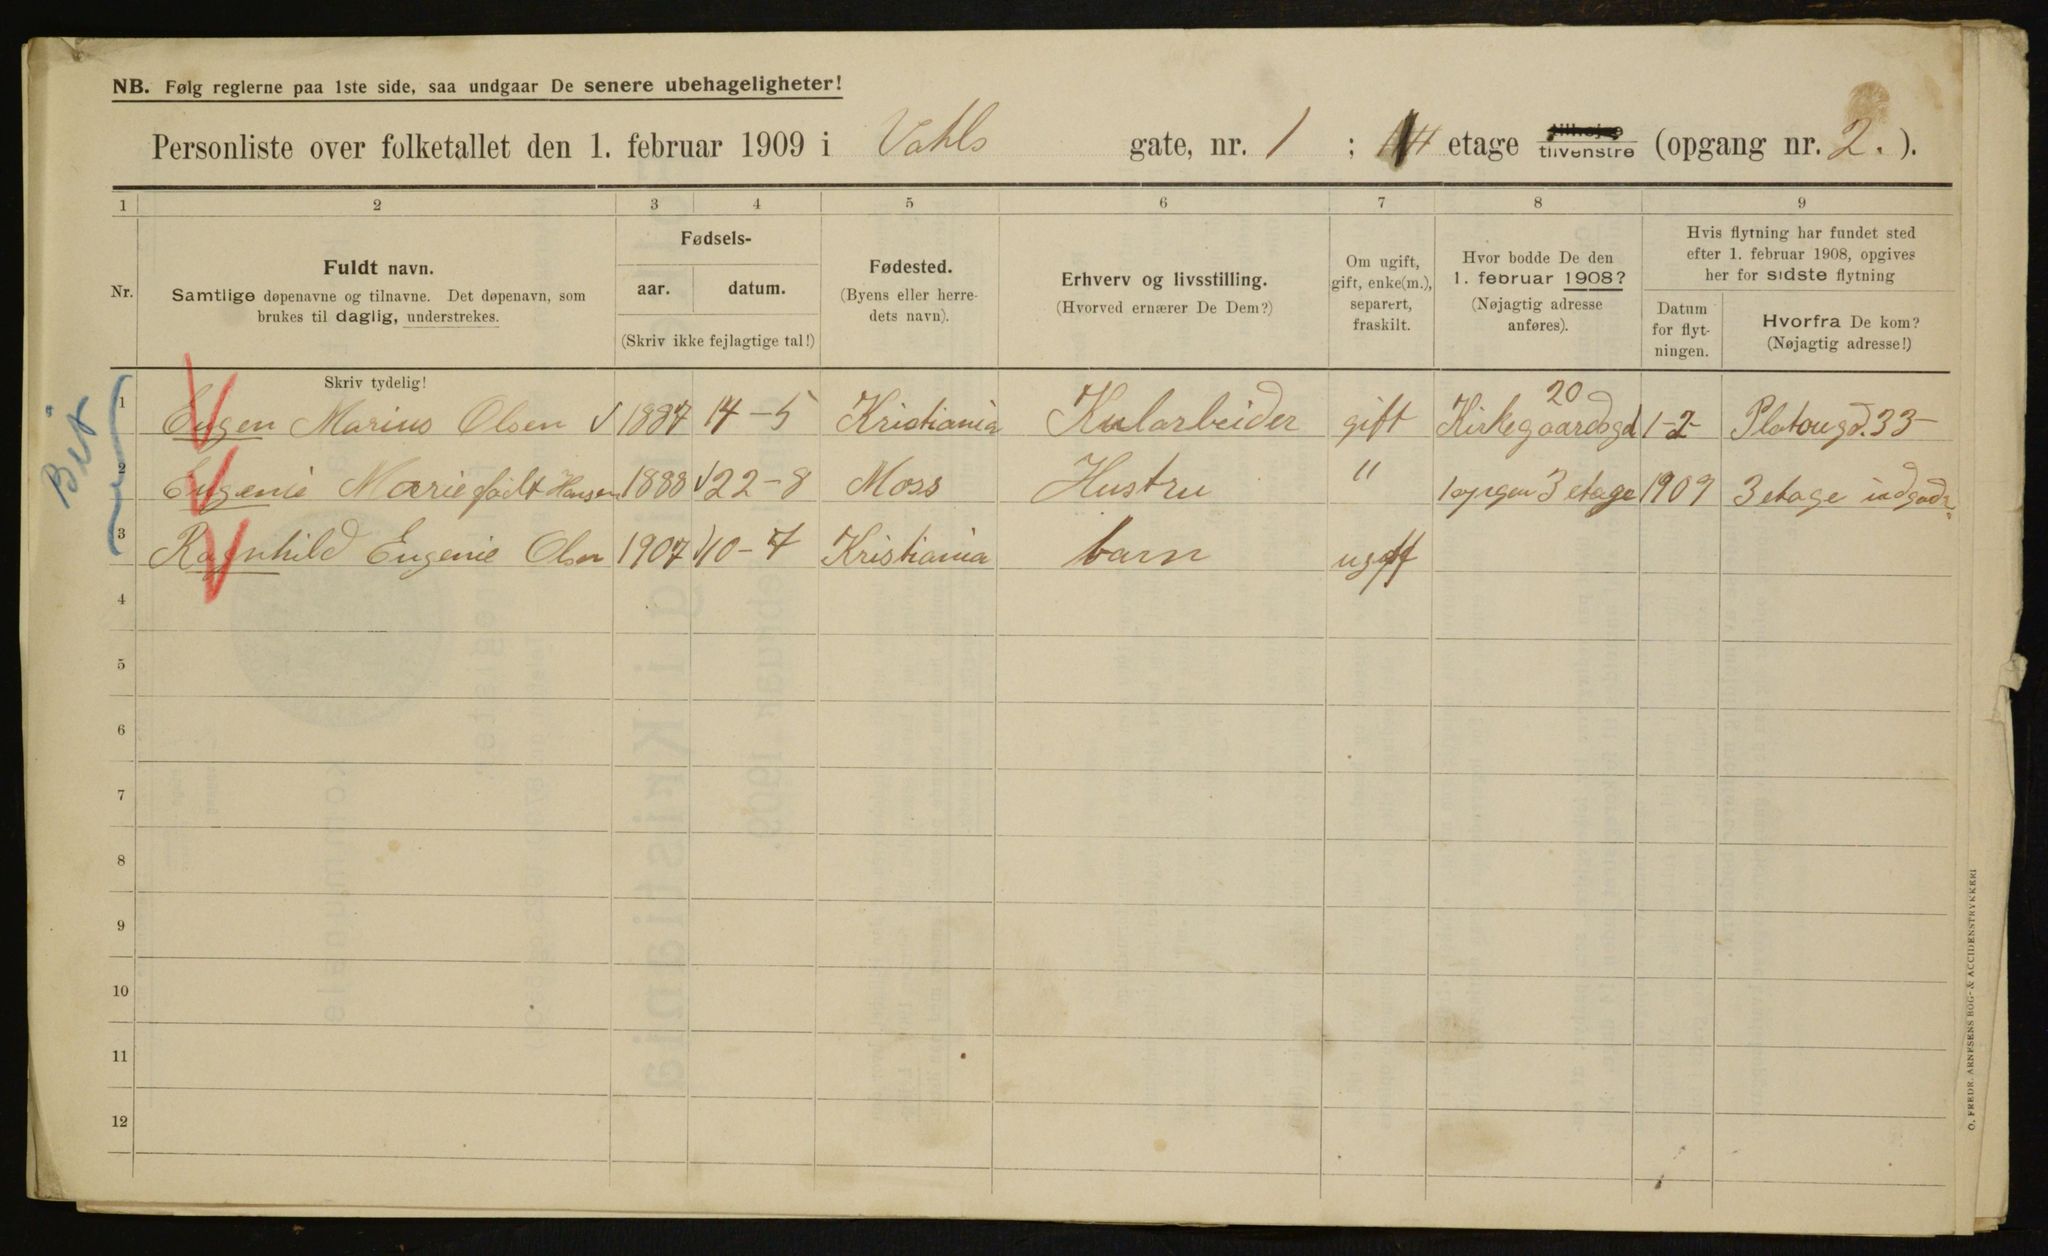 NB. Følg reglerne paa 1ste side, saa undgaar De senere ubehageligheter!
Personliste over folketallet den 1. februar 1909 i Vahls gate, nr. 1 ; etage tilhøjre tilvenstre (opgang nr. 2. ).
1 2 3 4 5 6 7 8 9
Nr.
Fuldt navn.
Samtlige døpenavne og tilnavne. Det døpenavn, som
brukes til daglig, understrekes.
Fødsels-
aar. datum.
(Skriv ikke fejlagtige tal!)
Fødested.
(Byens eller herre-
dets navn).
Erhverv og livsstilling.
(Hvorved ernærer De Dem?)
Om ugift,
gift, enke(m.),
separert,
fraskilt.
Hvor bodde De den
1. februar 1908?
(Nøjagtig adresse
anføres).
Hvis flytning har fundet sted
efter 1. februar 1908, opgives
her for sidste flytning
Datum
for flyt-
ningen.
Hvorfra De kom?
(Nøjagtig adresse!)
Skriv tydelig!
1 Eugen Marius Olsen 1887 14-5 Kristiania Kularbeider gift Kirkegaardsgd 20 1-2- Platougd. 33-
2 Eugenie Marie født Hansen 1888 22-8 Moss Hustru " 3 etage 1909 3 etage
3 Ragnhild Eugenie Olsen 1907 10-7 Kristiania barn ugift
4
5
6
7
8
9
10
11
12
O. FREDR. ARNESENS BOG- & ACCIDENSTRYKKERI